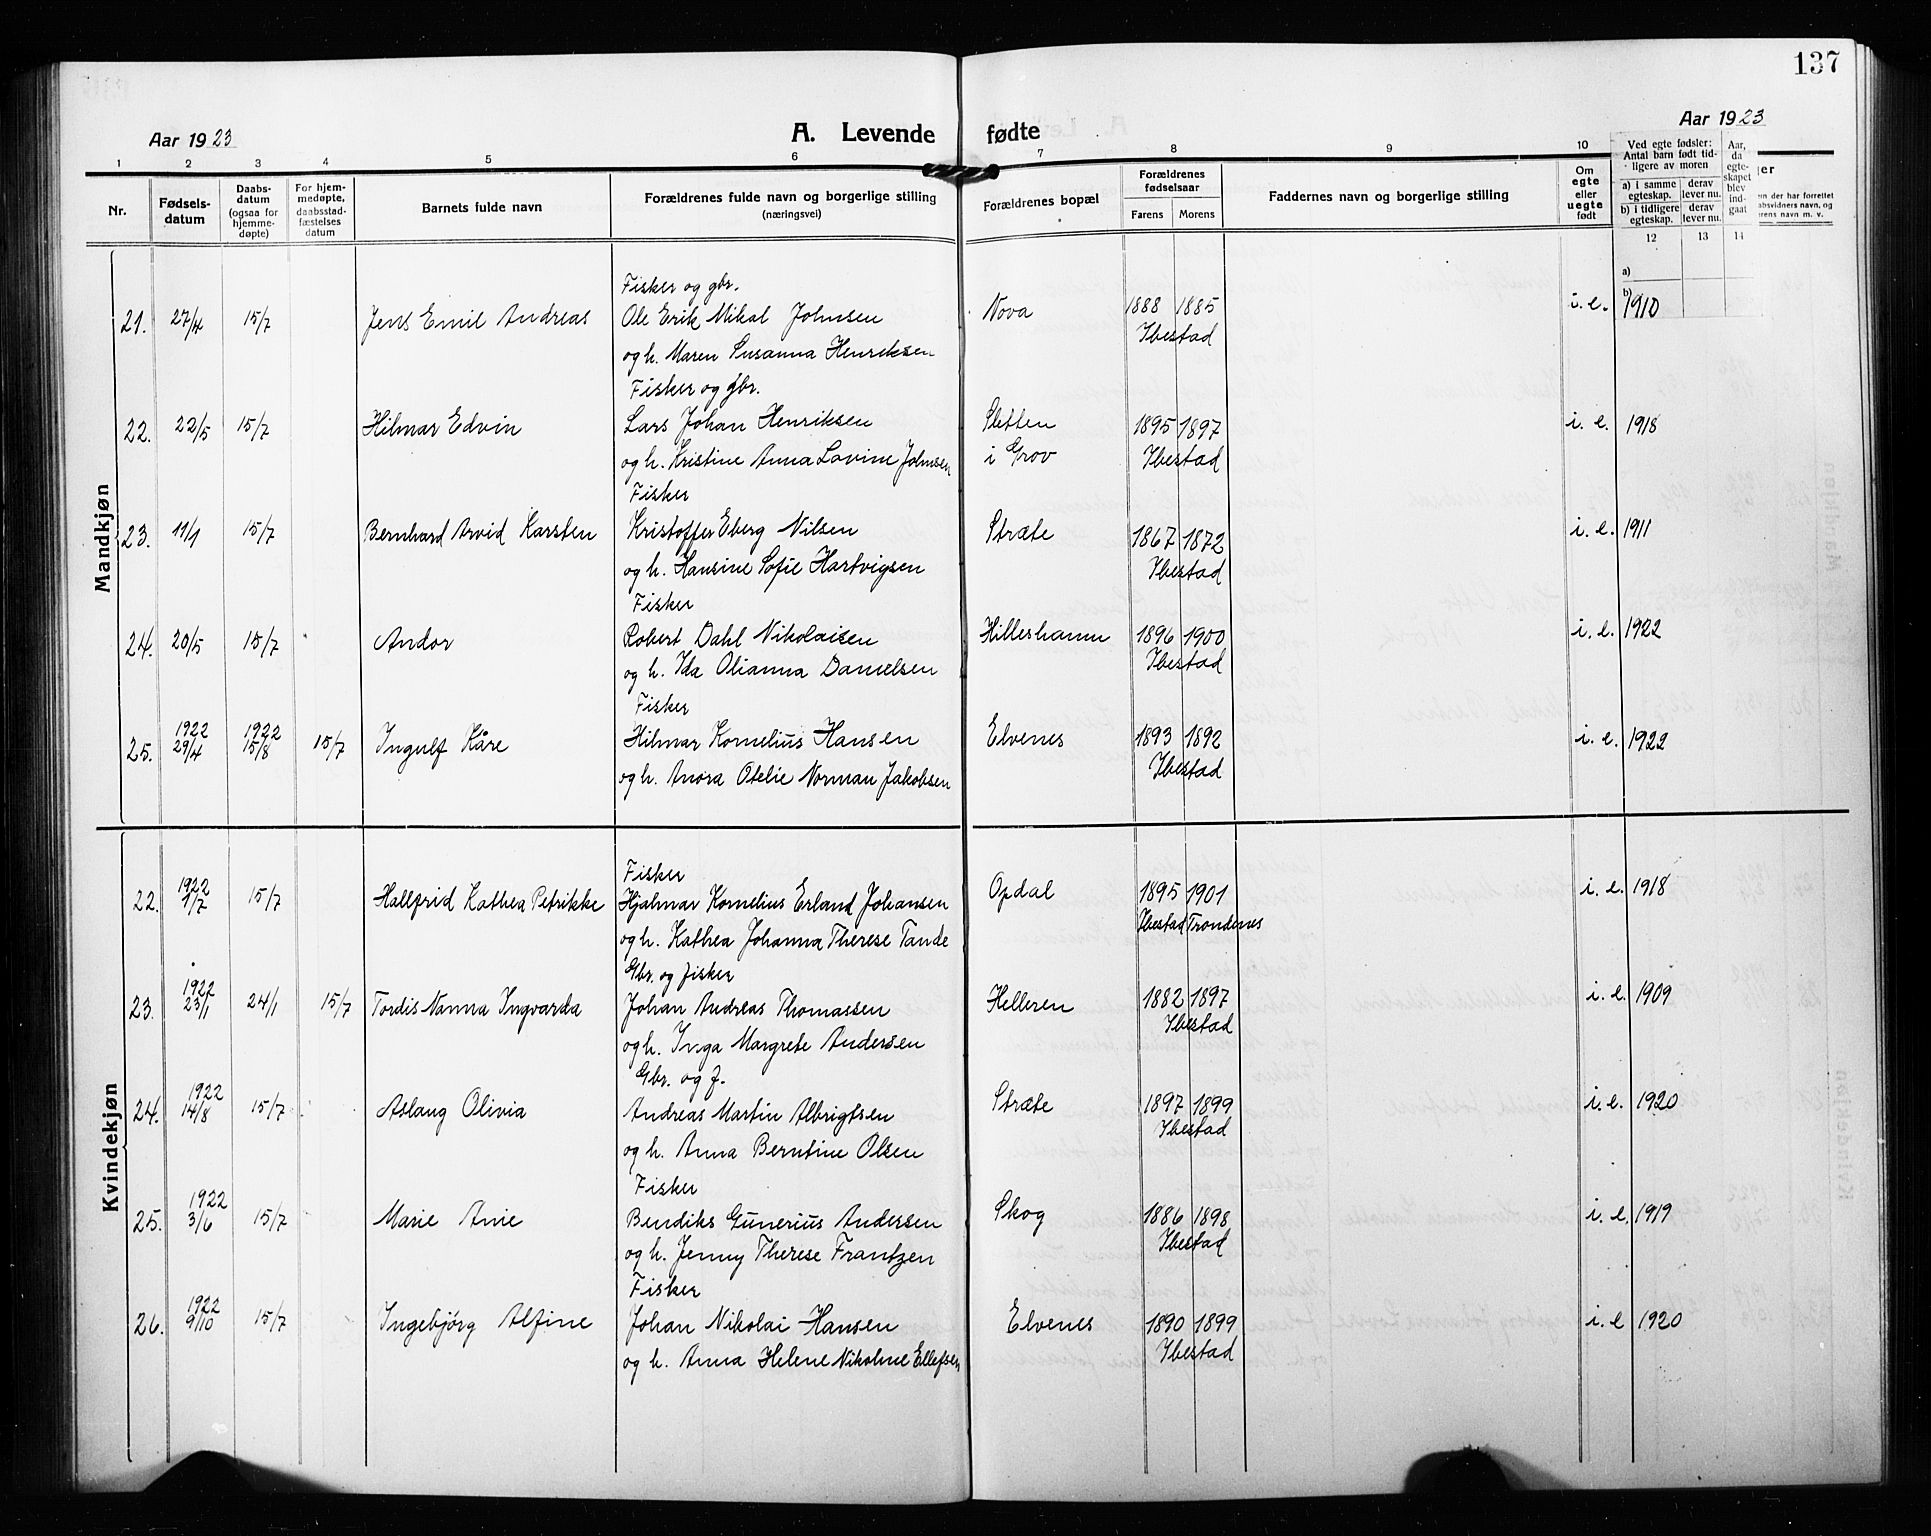 137
Aar 1923
A. Levende fødte
Aar 1923
1 2 3 4 5 6 7 8 9 10
Nr.
Fødsels-
datum
Daabs-
datum
(ogsaa for
hjemme-
døpte)
For hjem-
medøpte,
daabsstad-
fæstelses
datum
Barnets fulde navn
Forældrenes fulde navn og borgerlige stilling
(næringsvei)
Forældrenes bopæl
Forældrenes
fødselsaar
Farens Morens
Faddernes navn og borgerlige stilling
Om
egte
eller
uegte
født
Ved egte fødsler:
Antal barn født tid-
ligere av moren
a) i samme
egteskap.
derav
lever nu.
b) i tidligere
egteskap.
derav
lever nu.
Aar,
da
egte-
skapet
blev
ind-
gaat
12 13 14
a)
b)
Mandkjøn
Fisker og gbr.
21. 27/4 15/7 Jens Emil Andreas Ole Erik Mikal Johnsen Nova 1888 1885 i. e. 1910
og h. Maren Susanna Henriksen Ibestad
Fisker og gbr.
22. 22/5 15/7 Hilmar Edvin Lars Johan Henriksen Sletten 1895 1897 i. e. 1918
og h. Kristine Anna Lovine Johnsen i Grov Ibestad
Fisker
23. 11/1 15/7 Bernhard Arvid Karsten Kristoffer Eberg Nilsen Stræte 1867 1872 i. e. 1911
og h. Hansine Sofie Hartvigsen Ibestad
Fisker
24. 20/5 15/7 Andor Robert Dahl Nikolaisen Hilleshamn 1896 1900 i. e. 1922
og h. Ida Olianna Danielsen Ibestad
Fisker
1922 1922
25. 29/4 15/8 15/7 Ingulf Kåre Hilmar Kornelius Hansen Elvenes 1893 1892 i. e. 1922
og h. Anora Otelie Norman Jakobsen Ibestad
Kvindekjøn
Fisker
1922
22. 1/7 15/7 Hallfrid Kathea Petrikke Hjalmar Kornelius Erland Johansen Opdal 1895 1901 i. e. 1918
og h. Kathea Johanna Therese Tande Ibestad Trondenes
Gbr. og fisker
1922
23. 23/1 24/1 15/7 Tordis Nanna Ingvarda Johan Andreas Thomassen Helleren 1882 1897 i. e. 1909
og h. Inga Margrete Andersen Ibestad
Gbr. og f.
1922
24. 14/8 15/7 Aslaug Olivia Andreas Martin Albrigtsen Stræte 1897 1899 i. e. 1920
og h. Anna Berntine Olsen Ibestad
Fisker
1922
25. 3/6 15/7 Marie Anie Bendiks Gunerius Andersen Skog 1886 1898 i. e. 1919
og h. Jenny Therese Frantzen Ibestad
Fisker
1922
26. 9/10 15/7 Ingebjørg Alfine Johan Nikolai Hansen Elvenes 1890 1899 i. e 1920
og h. Anna Helene Nikoline Ellefsen Ibestad